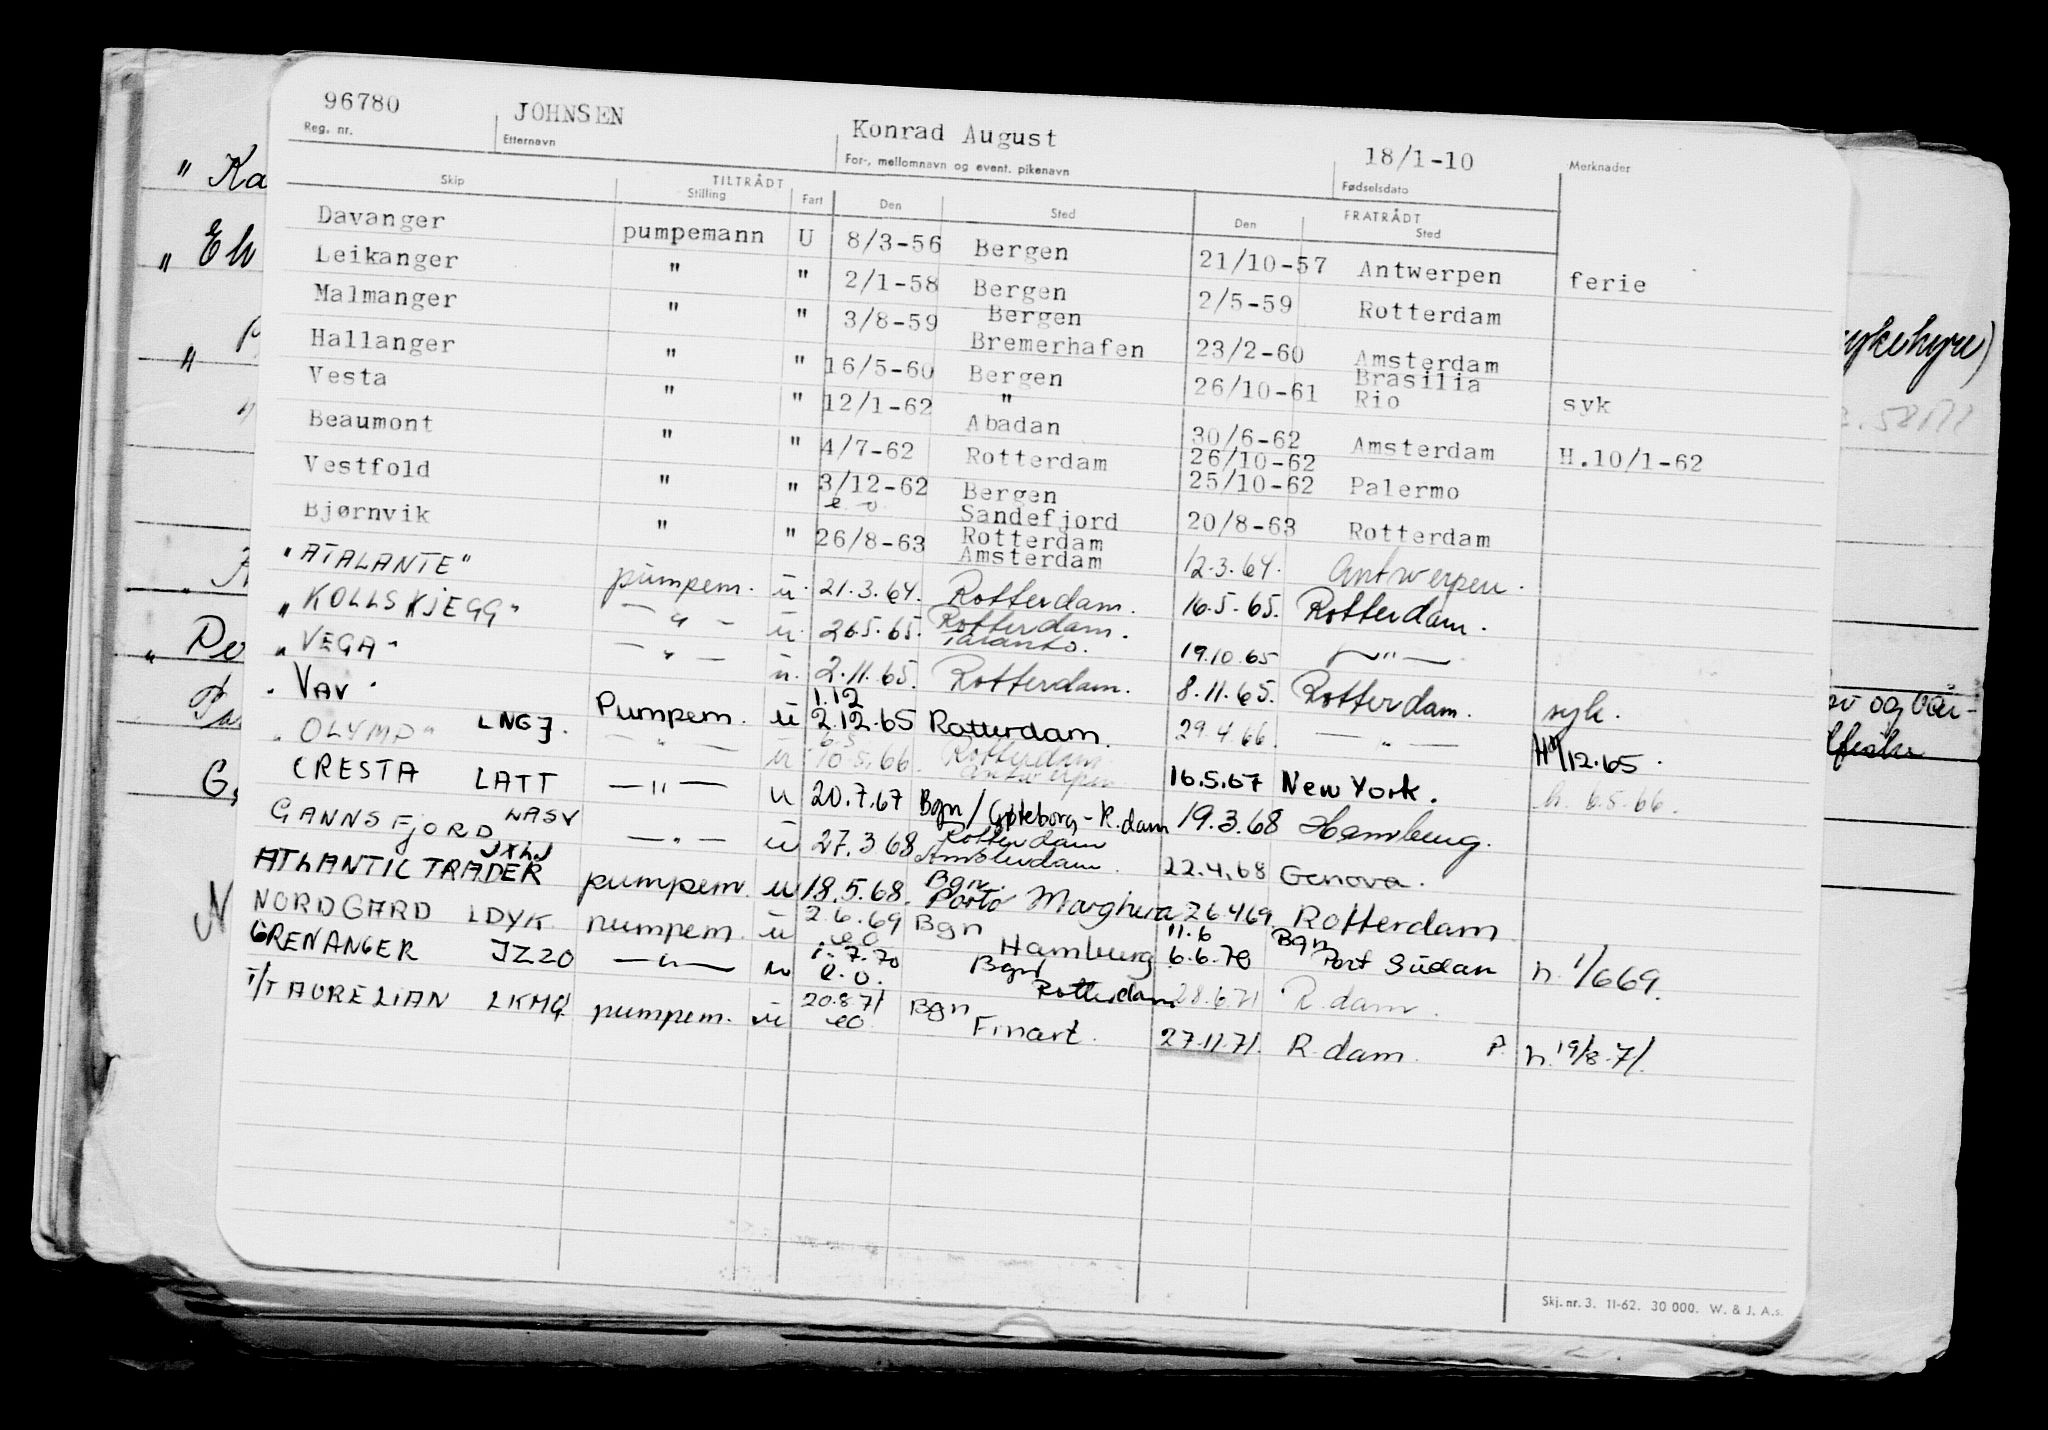 96780 JOHNSEN Konrad August 18/1-10
Reg. nr. Etternavn For-, mellomnavn og event. pikenavn Fødselsdato Merknader
TILTRÅDT FRATRÅDT
Skip Stilling Fart Den Sted Den Sted
Davanger pumpemann U 8/3-56 Bergen 21/10-57 Antwerpen ferie
Leikanger " " 2/1-58 Bergen 2/5-59 Rotterdam
Malmanger " " 3/8-59 Bergen Bremerhafen 23/2-60 Amsterdam
Hallanger " " 16/5-60 Bergen 26/10-61 Brasilia Rio syk
Vesta " " 12/1-62 " Abadan 30/6-62 Amsterdam H.10/1-62
Beaumont " " 4/7-62 Rotterdam 26/10-62 25/10-62 Palermo
Vestfold " " 3/12-62 e o Bergen Sandefjord 20/8-63 Rotterdam
Bjørnvik " " 26/8-63 Rotterdam Amsterdam 12.3.64. Antwerpen.
"ATALANTE" pumpem. u. 21.3.64. Rotterdam. 16.5.65. Rotterdam.
"KOLLSKJEGG" — " — u. 26.5.65. Rotterdam. Taranto. 19.10.65 — " —
"VEGA" — " — u. 2.11.65. Rotterdam. 8.11.65. Rotterdam. syk.
"VAV" LNGJ. Pumpem. u 1.12 2.12.65 Rotterdam. 29.4.66. — " — H 1/12.65.
"OLYMP" — " — u 6.5 10.5.66. Rotterdam Antwerpen 16.5.67 New York. h. 6.5.66.
CRESTA LATT — " — u 20.7.67 Bgn/Gøteborg-R.dam 19.3.68 Hamburg.
GANNSFJORD LASV — " — u 27.3.68 Rotterdam Amsterdam. 22.4.68 Genova.
ATLANTIC TRADER JXLJ pumpem. u 18.5.68. Bgn. Porto Marghera 26.4.69 Rotterdam
NORDGARD LDYK pumpem. u 2.6.69 eo Bgn Hamburg 11.6 6.6.70 Bgn Port Sudan h. 1/669.
GRENANGER JZZO — " — u 1.7.70 e.o. Bgn/ Rotterdam 28.6.71 R.dam.
T/T AURELIAN LKMG pumpem. u 20.8.71 eo Bgn Finart. 27.11.71. R.dam. P. h. 19/8.71.
Skj. nr. 3. 11-62. 30 000. W. & J. A.s.